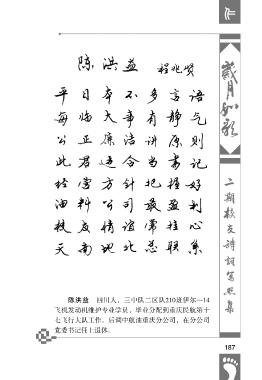 陈洪益 程兆贤
平日本不多言语
每临大事有静气
公正廉洁讲原则
此君适合当书记
经营方针把握好
油料公司最盈利
校友情谊常挂心
天南地北总联系
陈洪益 四川人，三中队二区队210班伊尔—14
飞机发动机维护专业学员，毕业分配到重庆民航第十
七飞行大队工作。后调中航油重庆分公司，在分公司
党委书记任上退休。
岁月如歌
二期校友诗词写照集
187